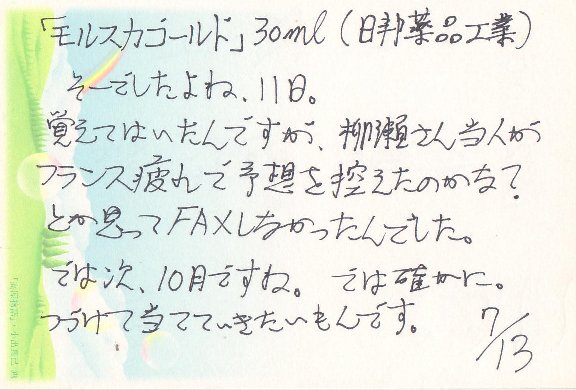 「モルスカゴールド」30ml（日邦薬品工業）
そーでしたよね、11日。
覚えてはいたんですが、柳瀬さん当人が
フランス疲れで予想を控えたのかな？
とか思ってFAXしなかったんでした。
では次、10月ですね。では確かに。
つづけて当てていきたいもんです。
7/13